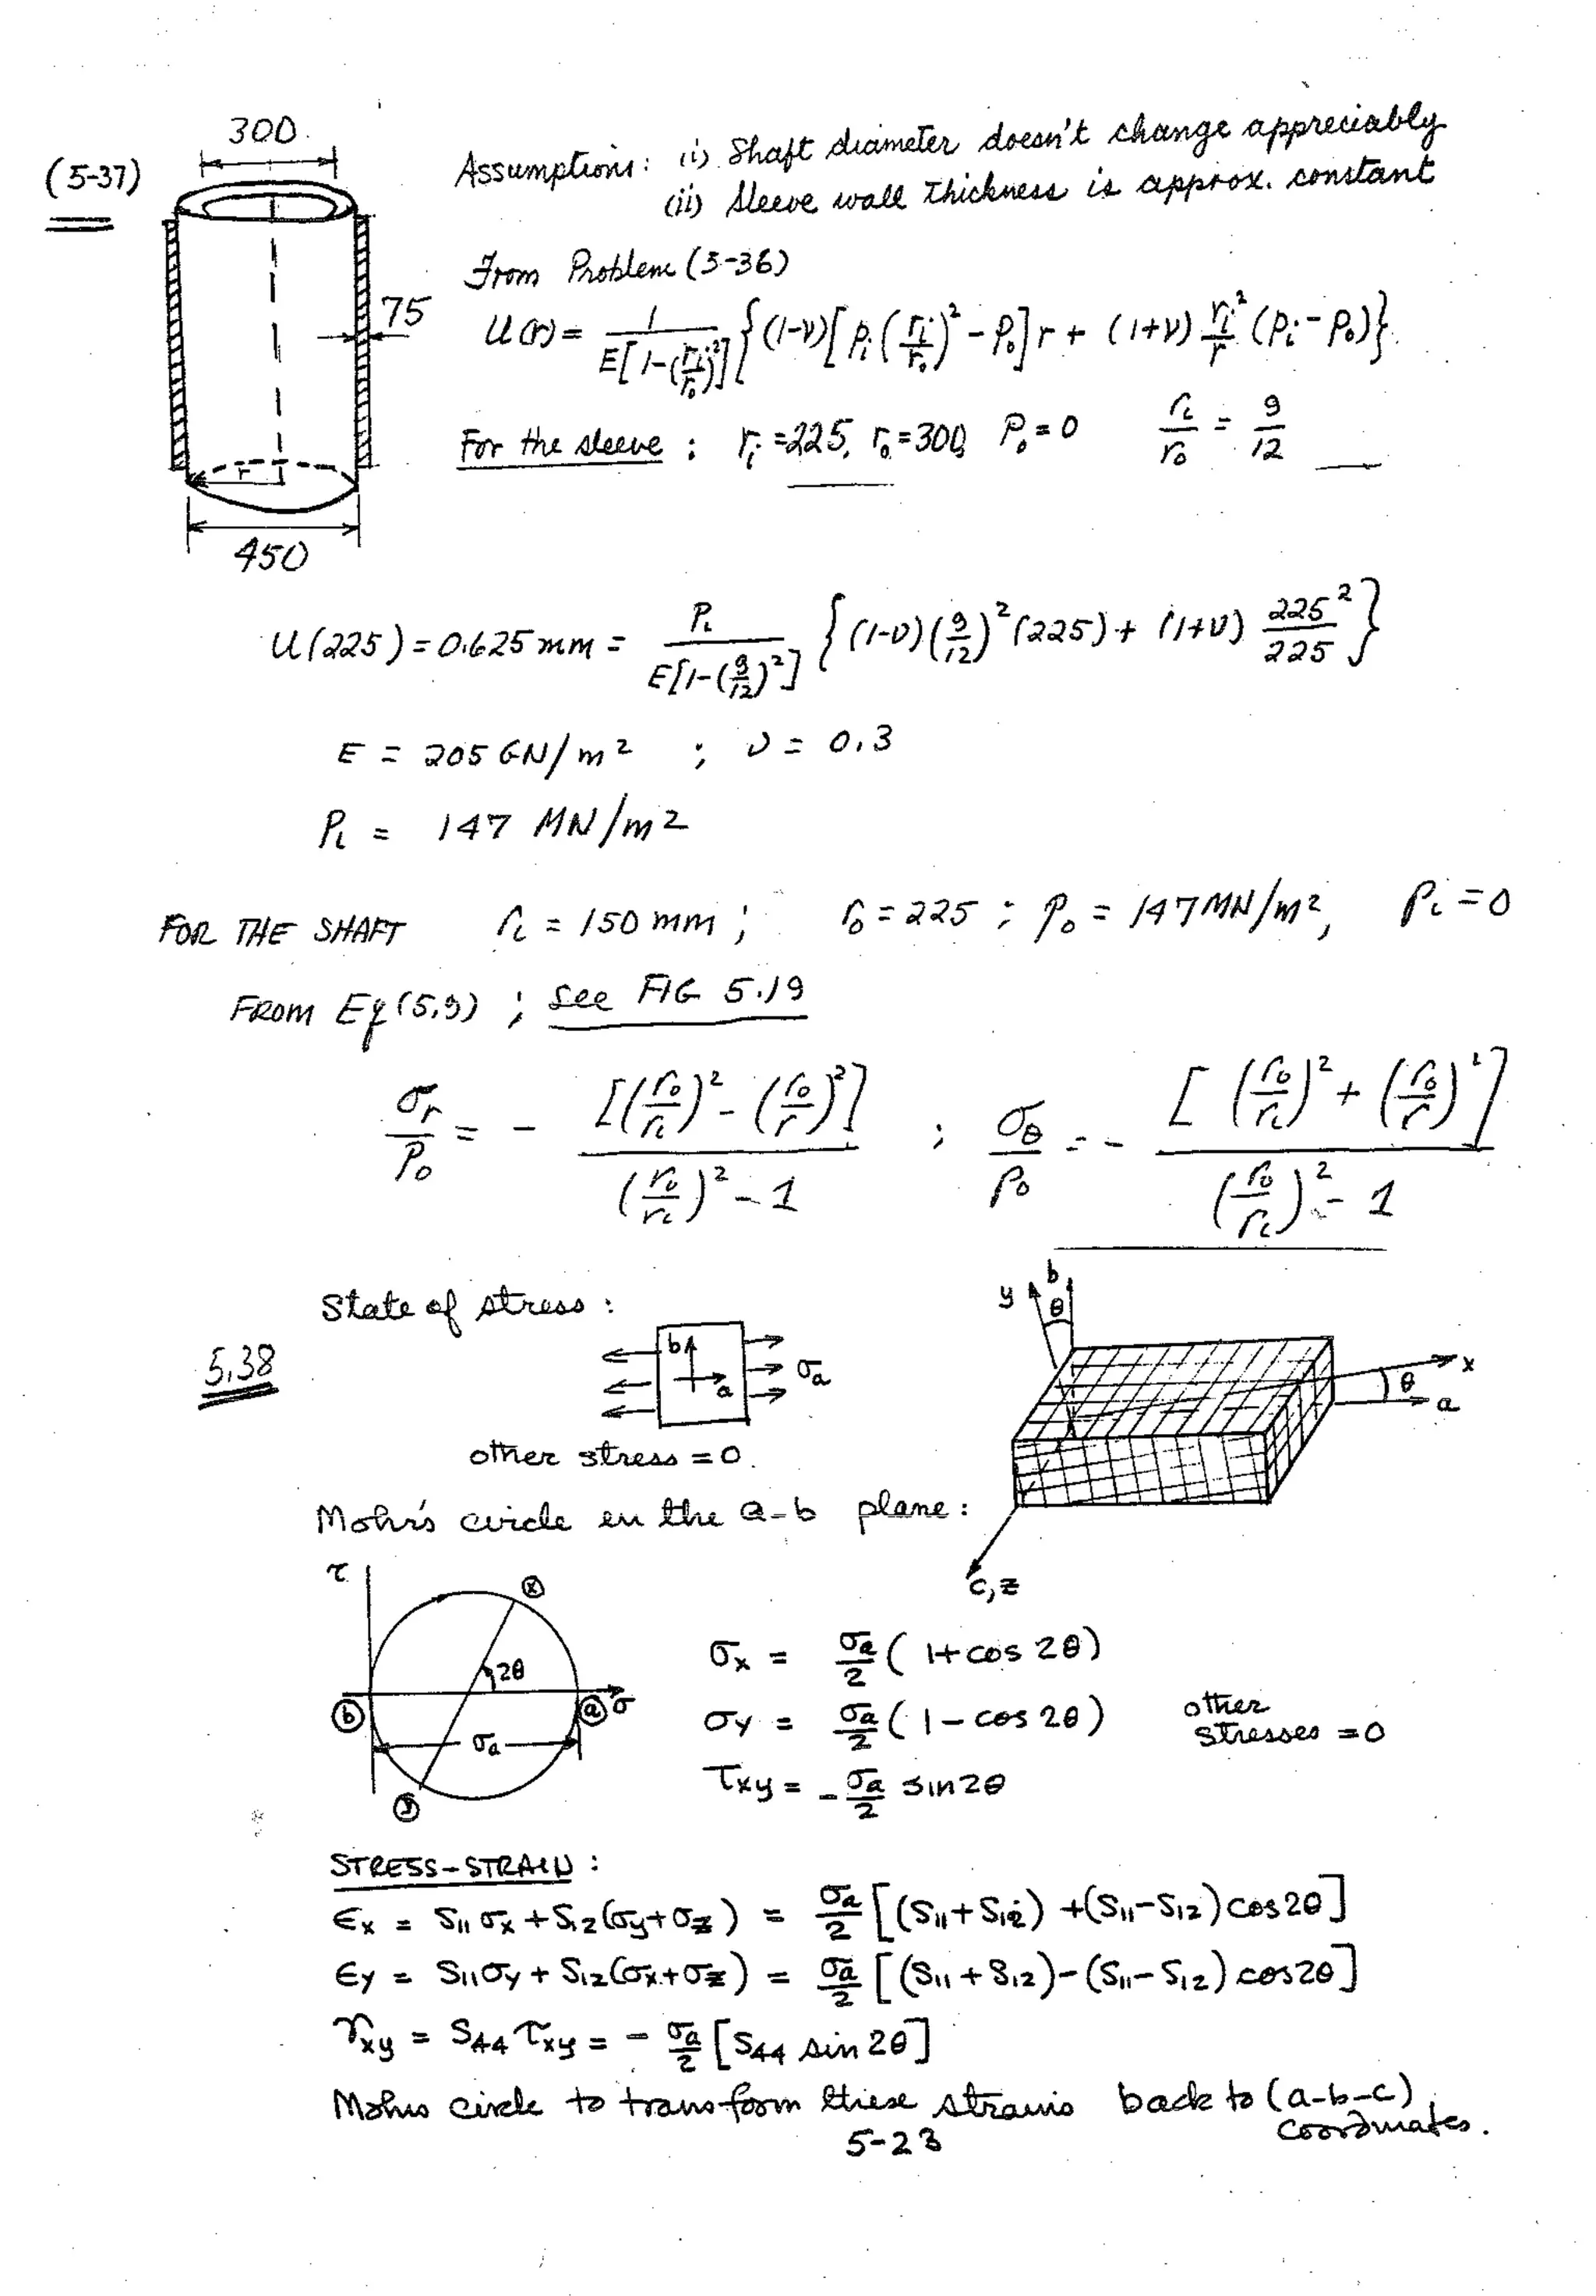 300
(5-37)
Assumptions: (i) Shaft diameter doesn't change appreciably
(ii) Sleeve wall thickness is approx. constant
From Problem (5-36)
75
u(r) = 1/E[1-(ri/ro)²] {(1-ν)[Pi(ri/ro)² - Po]r + (1+ν) ri²/r (Pi - Po)}
For the sleeve : ri = 225, ro = 300, Po = 0 ri/ro = 9/12
r
450
u(225) = 0.625 mm = Pi/E[1-(9/12)²] {(1-ν)(9/12)²(225) + (1+ν) 225²/225}
E = 205 GN/m² ; ν = 0.3
Pi = 147 MN/m²
FOR THE SHAFT ri = 150 mm ; ro = 225 ; Po = 147 MN/m², Pi = 0
FROM Eq (5.9) ; See FIG 5.19
σr/Po = - [(ro/ri)² - (ro/r)²]/(ro/ri)² - 1 ; σθ/Po = - [(ro/ri)² + (ro/r)²]/(ro/ri)² - 1
State of stress :
5.38
b a σa
y b θ x θ a
other stress = 0.
Mohr's circle in the a-b plane :
c, z
τ x 2θ b a σ σa y
σx = σa/2 (1 + cos 2θ)
σy = σa/2 (1 - cos 2θ) other stresses = 0
τxy = - σa/2 sin 2θ
STRESS-STRAIN :
εx = S11 σx + S12(σy + σz) = σa/2 [(S11 + S12) + (S11 - S12) cos 2θ]
εy = S11 σy + S12(σx + σz) = σa/2 [(S11 + S12) - (S11 - S12) cos 2θ]
γxy = S44 τxy = - σa/2 [S44 sin 2θ]
Mohrs circle to transform these strains back to (a-b-c)
coordinates.
5-23